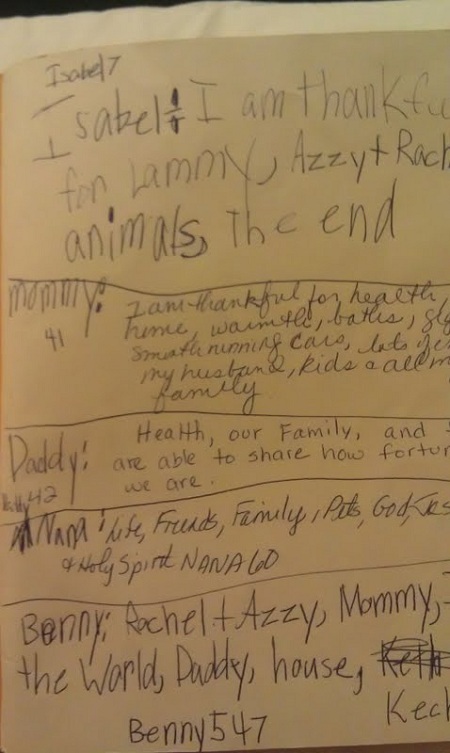 Isabel 7
Isabel: I am thankfu
for Lammy, Azzy + Rach
animals, The end
mommy: I am thankful for health,
41 home, warmth, baths, gl
smooth running cars, lots
my husband, kids & all m
family
Daddy: Health, our Family, and
are able to share how fortun
42 we are.
Nana: Life, Friends, Family, Pets, God, Jes
& Holy Spirit NANA 60
Benny: Rachel + Azzy, Mommy,
the World, Daddy, house,
Kech
Benny 547